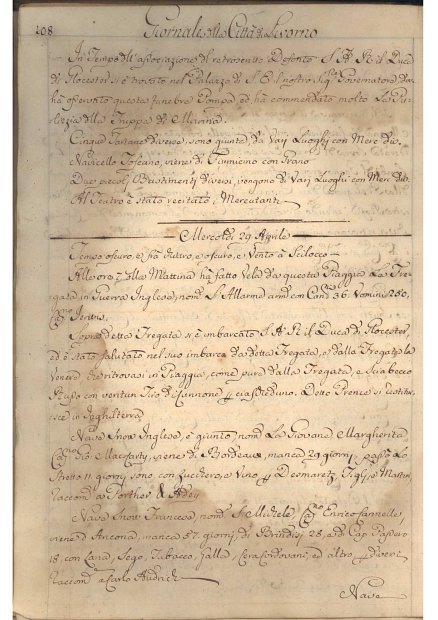 108 Giornale della Città di Livorno
In Tempo dell'associazione del retroscritto Defonto S. A. R. il Duca
di Glocester si è trovato nel Palazzo di S. E. il nostro Sig.re Governatore, dove
ha osservato questa funebre Pompa ed ha commendato molto La Pu-
lizia della Truppa di Marina.
Cinque Tartane diverse, sono giunte da Varj Luoghi con Merc. div.
Navicello Toscano, viene di Fiumicino con Grano
Due piccoli Bastimenti diversi, vengono di Varj Luoghi con Merc.
Al Teatro è stato recitato, i Mercatanti
Mercoledì 29 Aprile
Tempo oscuro, e poi oscuro, e Vento a Scilocco
Alle ore 7 della Mattina ha fatto Vela da questa Piaggia La Fre-
gata in Guerra Inglese, nom.a L'Allarme arm. con Can. 36. Uomini 250,
Cap.no Jervis.
Sopra detta Fregata si è imbarcato S. A. R. il Duca di Glocester
ed è stato salutato nel suo imbarco da detta Fregata, e dalla Fregata La
Venere che ritrovasi in Piaggia, come pure dalla Fregata, e Sciabecco
Russo con ventun Tiro di Cannone p. ciascheduno. Detto Prence si restitui-
sce in Inghilterra
Nave Snow Inglese, è giunto, nom.a La Giovane Margherita
Cap.no Gio. Maccarty, viene di Bordeaux, manca 29 giorni, passò Lo
Stretto 11 giorni, sono con Zucchero, e Vino p. Desmaretz, Figlj, e Martin,
raccom. a Porther & Ady
Nave Snow Francese, nom.a S. Michele Cap.no Enrico Jannelle,
viene d'Ancona, manca 57. giorni, di Brindisi 28, e di Cap. Passero
18, con Lana, Sego, Tabacco, Galla, Cera, Cordovani, ed altro p. diversi
raccom. a Carlo
Nave